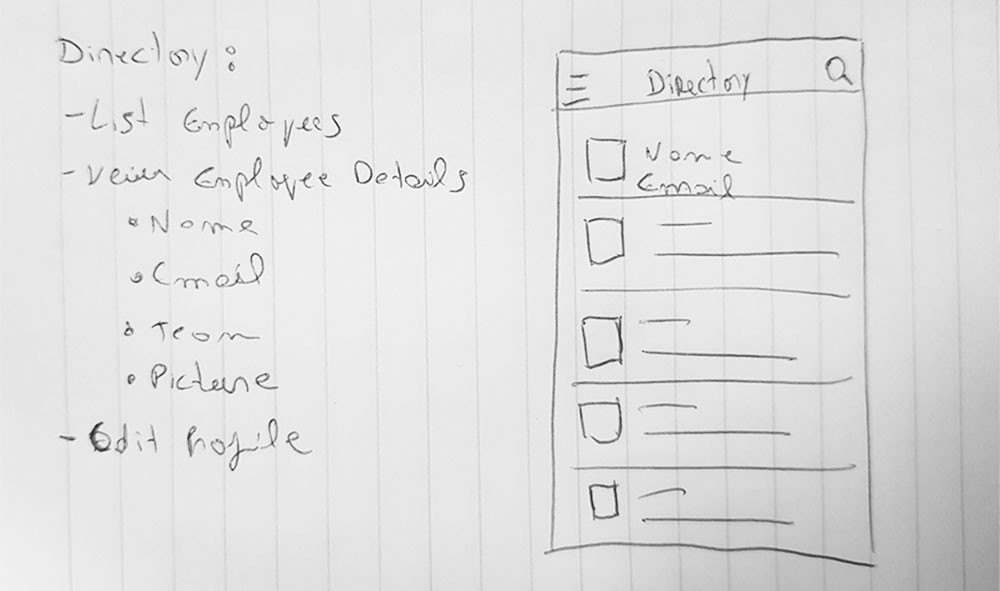 Directory:
- List Employees
- Veiw Employee Details
• Name
• Email
• Team
• Picture
- Edit Profile
Directory
Name
Email